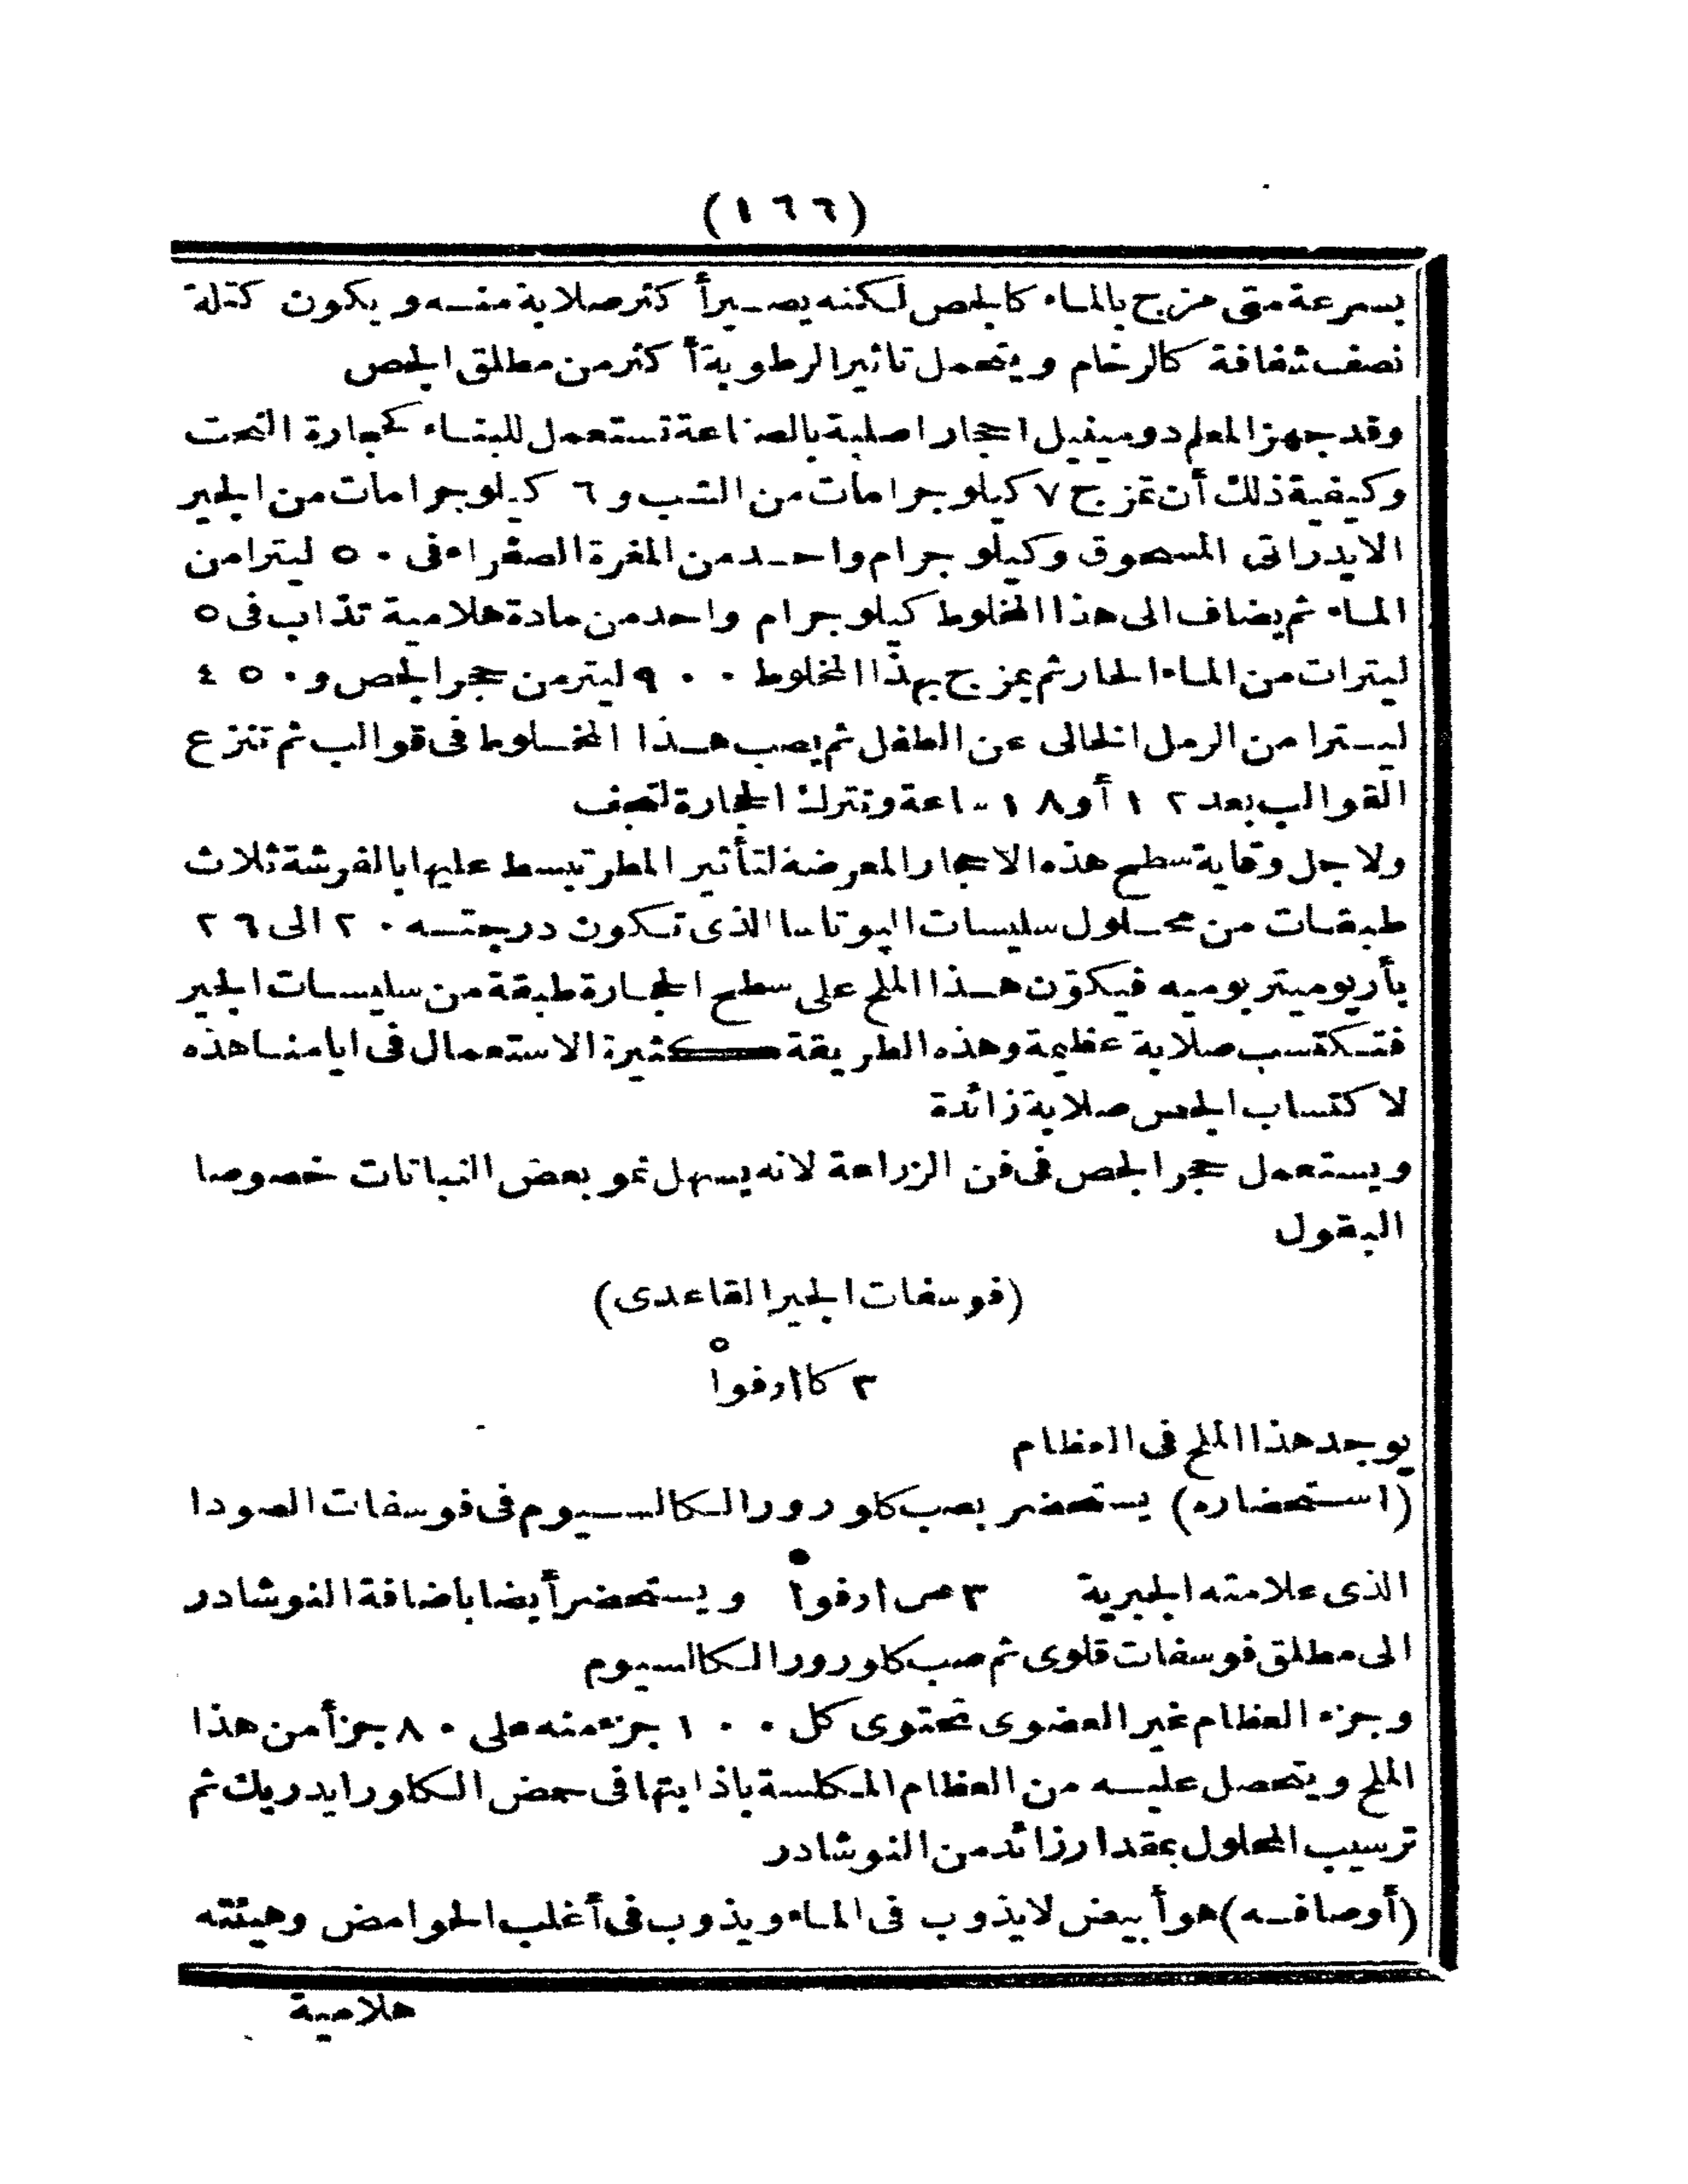 (١٦٦)
بسرعة متى مزج بالماء كالجص لكنه يصير أكثر صلابة منه ويكون كتلة
نصف شفافة كالرخام ويتحمل تاثير الرطوبة أكثر من مطلق الجص
وقد جهز المعلم دومينيل احجارا صلبة بالصناعة تستعمل للبناء كحجارة النحت
وكيفية ذلك أن تمزج ٧ كيلوجرامات من الشب و ٦ كيلوجرامات من الجير
الايدراتى المسحوق وكيلو جرام واحد من المغرة الصفراء فى ٥٠ ليترا من
الماء ثم يضاف الى هذا المخلوط كيلوجرام واحد من مادة هلامية تذاب فى ٥
ليترات من الماء الحار ثم يمزج بهذا المخلوط ٩٠٠ ليتر من حجر الجص و ٤٥٠
ليترا من الرمل الخالى عن الطفل ثم يصب هذا المخلوط فى قوالب ثم تنزع
القوالب بعد ١٢ أو ١٨ ساعة وتترك الحجارة لتجف
ولاجل وقاية سطح هذه الاحجار المعرضة لتأثير المطر تبسط عليها بالفرشة ثلاث
طبقات من محلول سليسات البوتاسا الذى تكون درجته ٢٠ الى ٢٦
بأريوميتر بوميه فيكوّن هذا الملح على سطح الحجارة طبقة من سليسات الجير
فتكتسب صلابة عظيمة وهذه الطريقة كثيرة الاستعمال فى ايامنا هذه
لاكتساب الجص صلابة زائدة
ويستعمل حجر الجص فى فن الزراعة لانه يسهل نمو بعض النباتات خصوصا
البقول
(فوسفات الجير القاعدى)
٣ كاا ر فوا٥
يوجد هذا الملح فى العظام
(استحضاره) يستحضر بصب كلورور الكالسيوم فى فوسفات الصودا
الذى علامته الجبرية ٣ ص ا ر فوا٥ ويستحضر أيضا باضافة النوشادر
الى مطلق فوسفات قلوى ثم صب كلورور الكالسيوم
وجزء العظام غير العضوى تحتوى كل ١٠٠ جزء منه على ٨٠ جزأ من هذا
الملح ويتحصل عليه من العظام المكلسة باذابتها فى حمض الكلورايدريك ثم
ترسيب المحلول بمقدار زائد من النوشادر
(أوصافه) هو أبيض لايذوب فى الماء ويذوب فى أغلب الحوامض وهيئته
هلامية